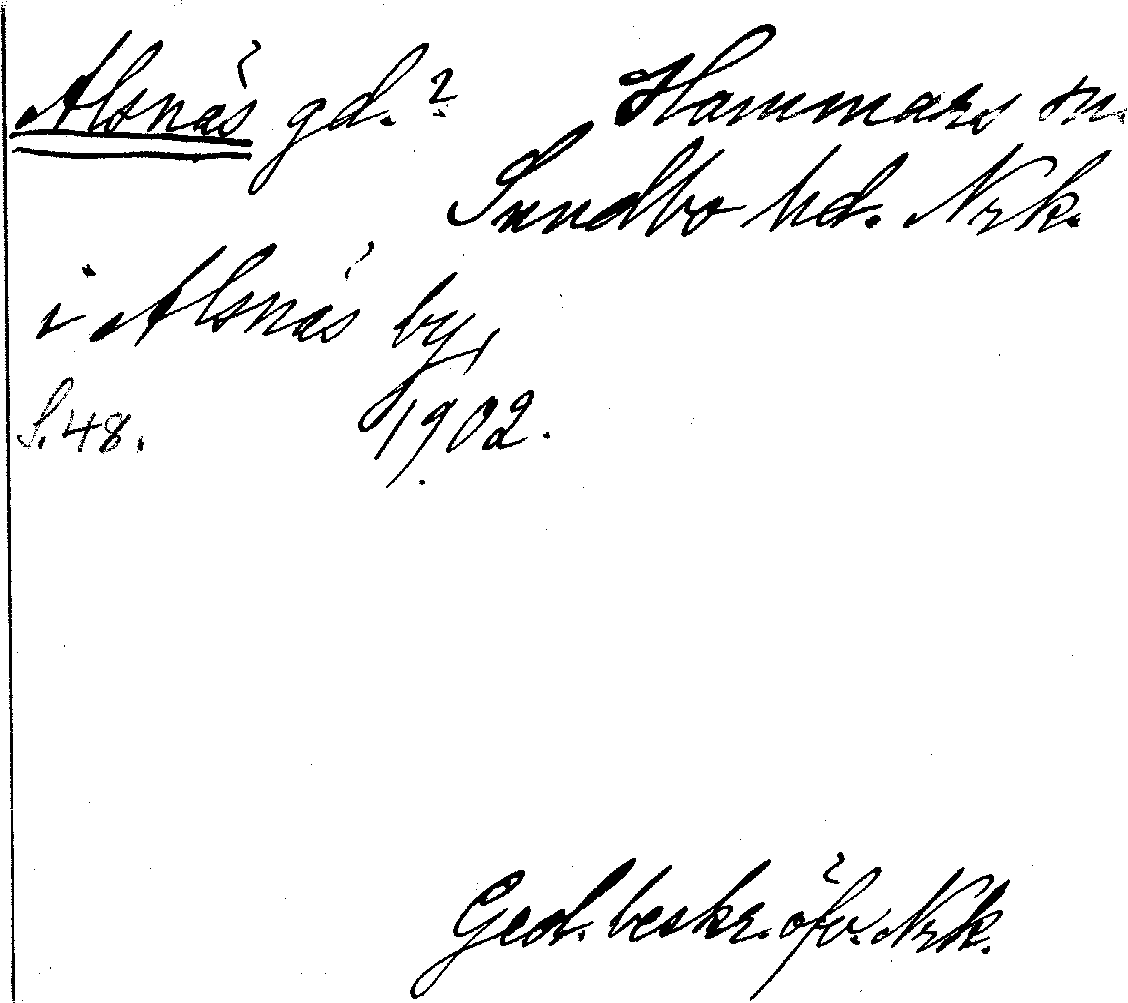 Alsnäs gd.? Hammars sn.
Sundbo hd. Nrk.
i Alsnäs by,
S. 48. 1902.
Geol. beskr. öfv. Nrk.